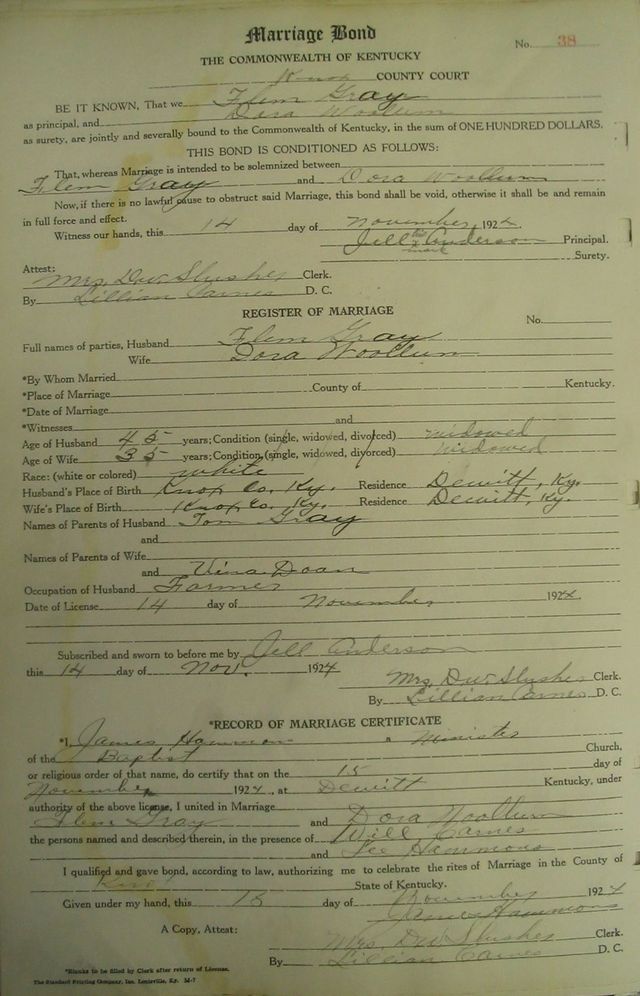 Marriage Bond
No. 38
THE COMMONWEALTH OF KENTUCKY
Knox COUNTY COURT
BE IT KNOWN, That we Flem Gray
as principal, and Dora Woollum
as surety, are jointly and severally bound to the Commonwealth of Kentucky, in the sum of ONE HUNDRED DOLLARS.
THIS BOND IS CONDITIONED AS FOLLOWS:
That, whereas Marriage is intended to be solemnized between
Flem Gray and Dora Woollum
Now, if there is no lawful cause to obstruct said Marriage, this bond shall be void, otherwise it shall be and remain
in full force and effect.
Witness our hands, this 14 day of November, 1924.
Jell his x mark Anderson Principal.
Surety.
Attest:
Mrs. D.W. Slusher Clerk.
By Lillian Carnes D. C.
REGISTER OF MARRIAGE
No.
Full names of parties, Husband Flem Gray
Wife Dora Woollum
*By Whom Married
*Place of Marriage County of Kentucky.
*Date of Marriage
*Witnesses and
Age of Husband 45 years; Condition (single, widowed, divorced) widowed
Age of Wife 35 years; Condition (single, widowed, divorced) widowed
Race: (white or colored) white
Husband's Place of Birth Knox Co. Ky. Residence Dewitt, Ky.
Wife's Place of Birth Knox Co. Ky. Residence Dewitt, Ky.
Names of Parents of Husband Tom Gray
and
Names of Parents of Wife
and Vina Doan
Occupation of Husband Farmer
Date of License 14 day of November 1924.
Subscribed and sworn to before me by Jell Anderson
this 14 day of Nov. 1924
Mrs. D.W. Slusher Clerk.
By Lillian Carnes D. C.
*RECORD OF MARRIAGE CERTIFICATE
*I, James Hammon a Minister
of the Baptist Church,
or religious order of that name, do certify that on the 15 day of
November 1924, at Dewitt Kentucky, under
authority of the above license, I united in Marriage
Flem Gray and Dora Woollum
the persons named and described therein, in the presence of Will Carnes
and Lee Hammons
I qualified and gave bond, according to law, authorizing me to celebrate the rites of Marriage in the County of
Knox State of Kentucky.
Given under my hand, this 15 day of November 1924
James Hammons
A Copy, Attest:
Mrs. D.W. Slusher Clerk.
By Lillian Carnes D. C.
*Blanks to be filled by Clerk after return of License.
The Standard Printing Company, Inc. Louisville, Ky. M-7